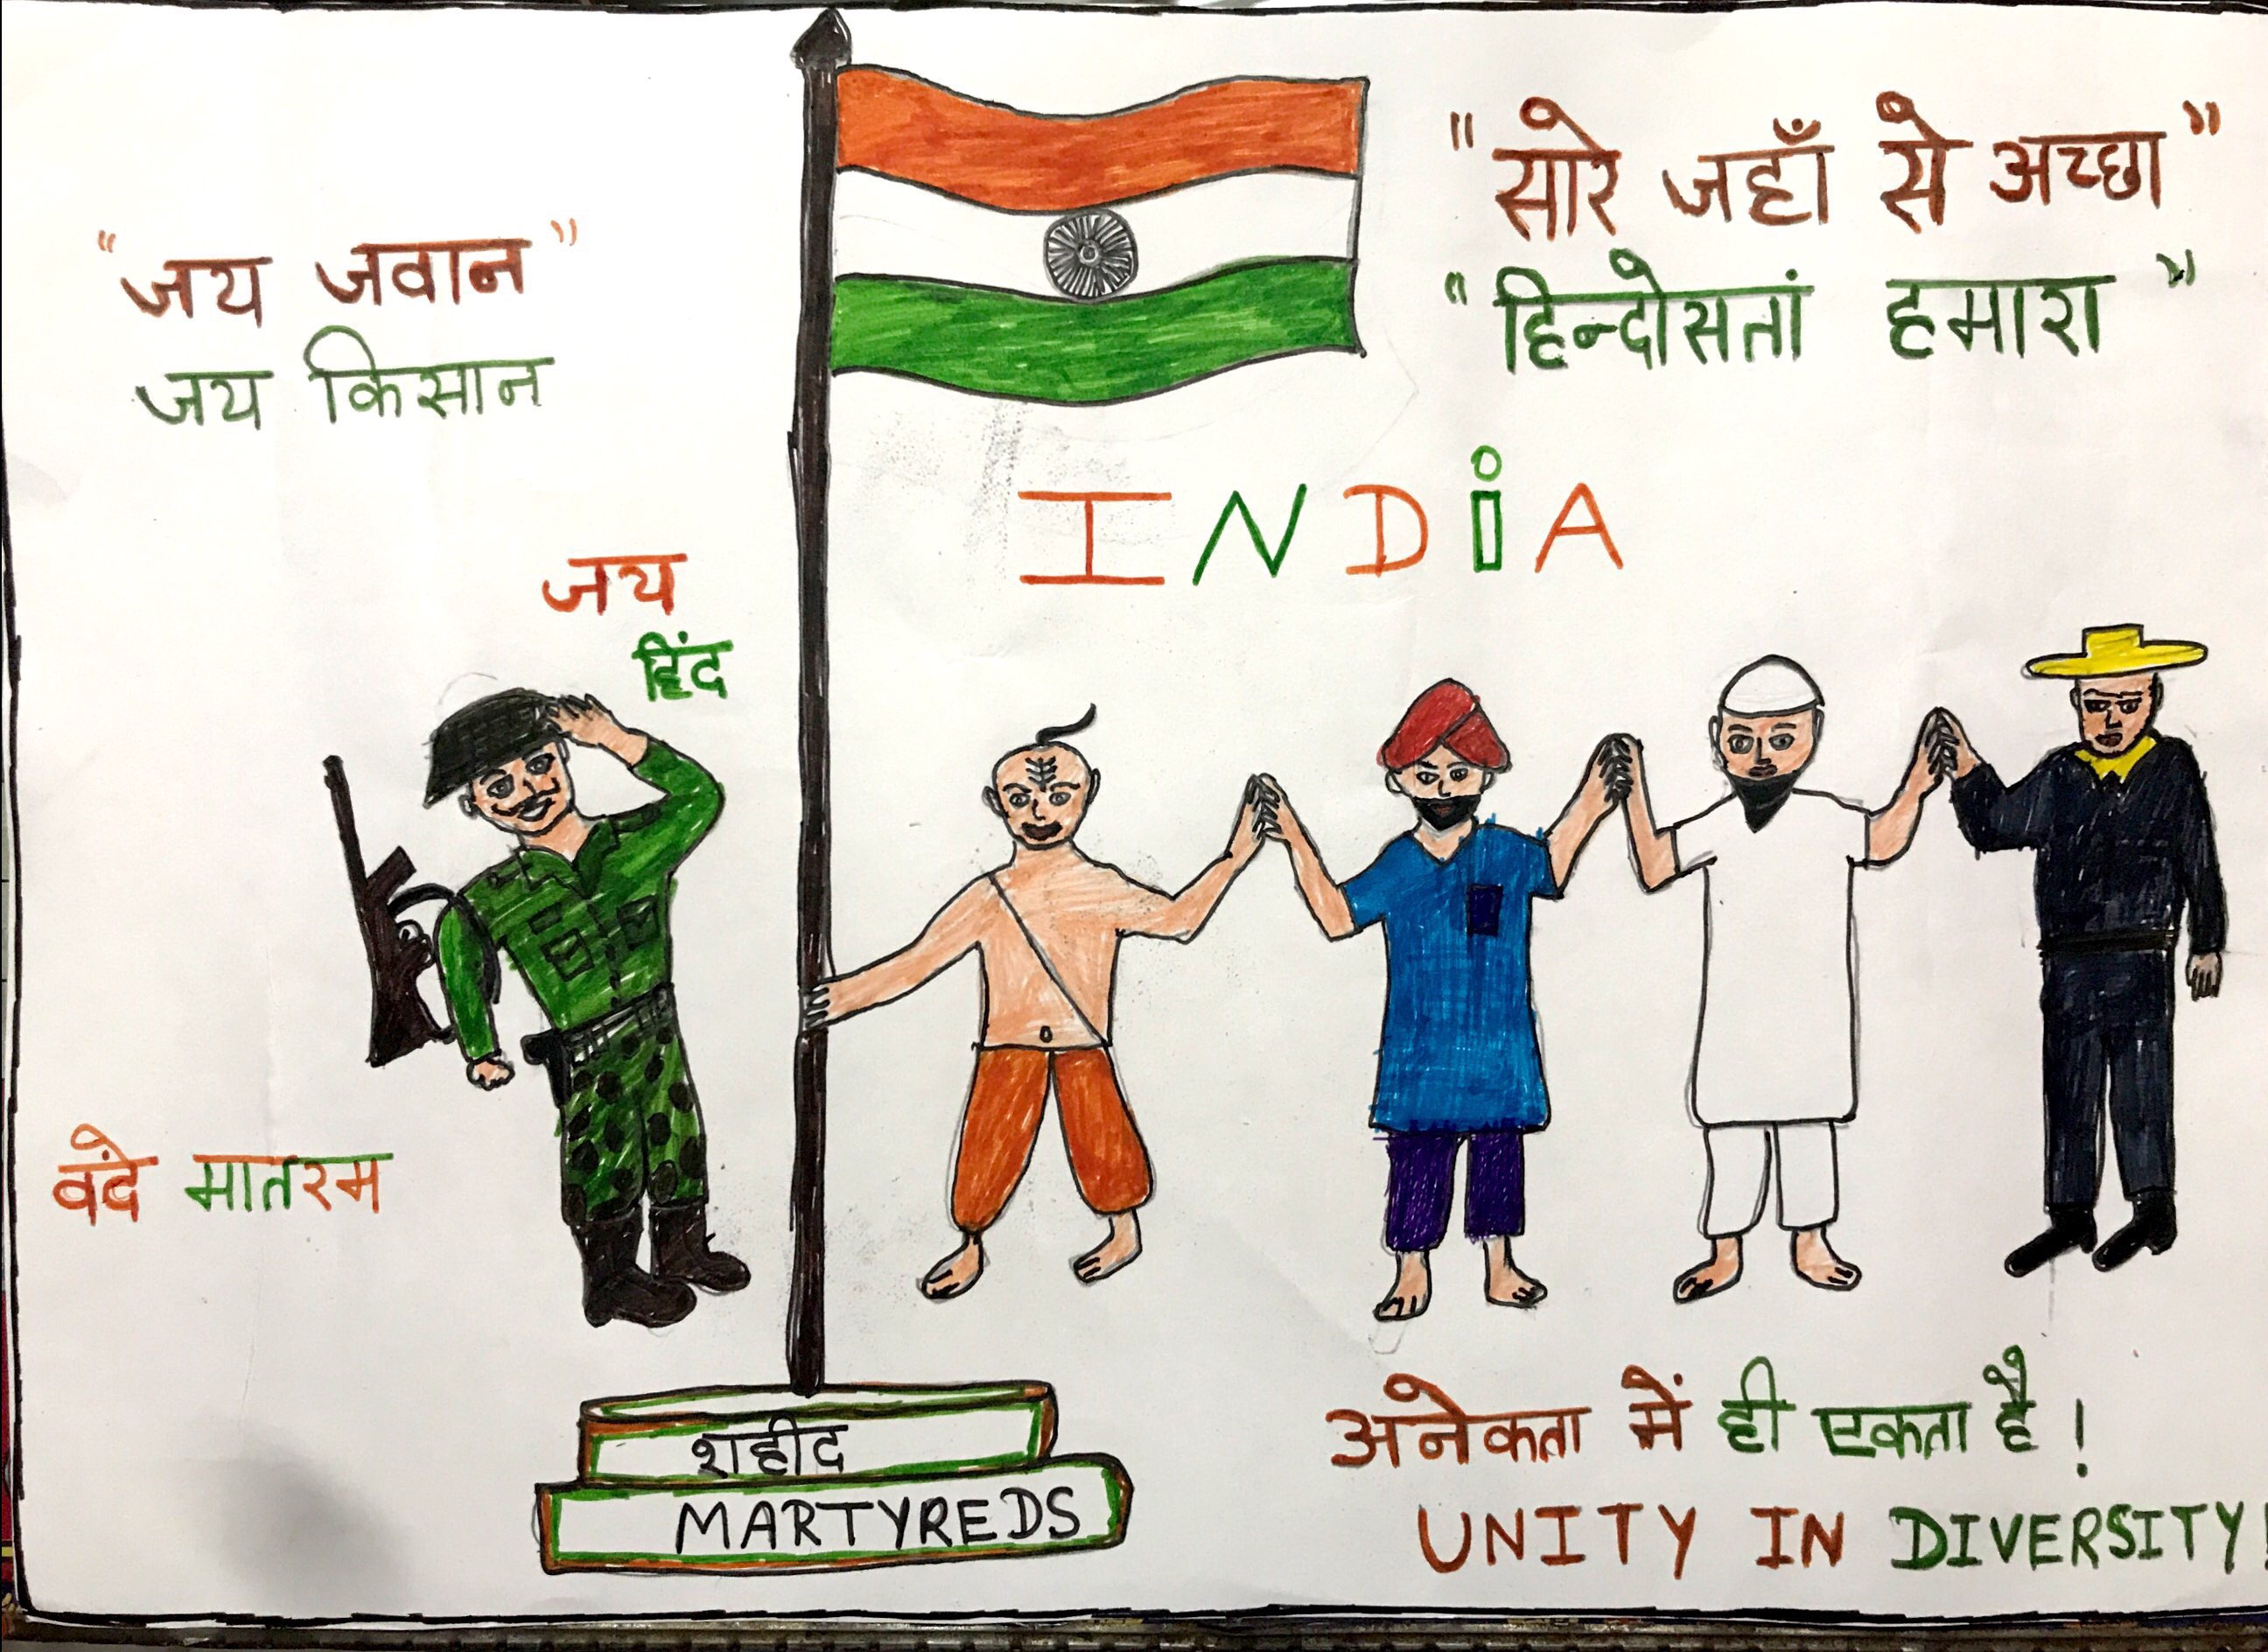 "जय जवान"
जय किसान
"सारे जहाँ से अच्छा"
"हिन्दोसतां हमारा"
INDiA
जय
हिंद
वंदे मातरम
शहीद
MARTYREDS
अनेकता में ही एकता है!
UNITY IN DIVERSITY!